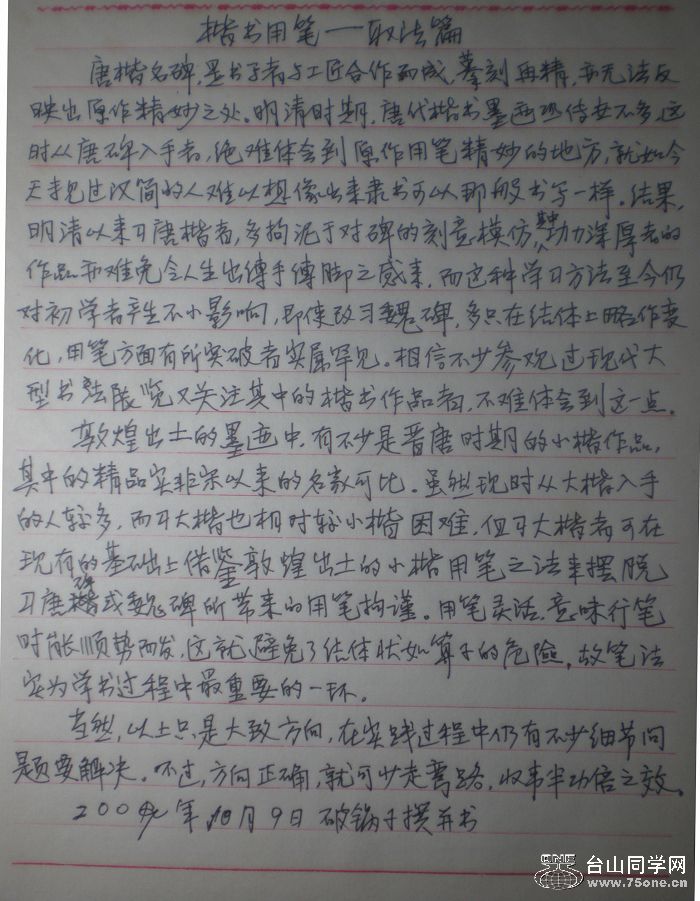 楷书用笔——取法篇
唐楷名碑,是书者与工匠合作而成,摹刻再精,亦无法反
映出原作精妙之处。明清时期,唐代楷书墨迹流传世不多,这
时从唐碑入手者,绝难体会到原作用笔精妙的地方,就如今
天未见过汉简的人难以想像出来隶书可以那般书写一样。结果,
明清以来习唐楷者,多拘泥于对碑的刻意模仿,功力深厚者的
作品亦难免令人生出缚手缚脚之感来,而这种学习方法至今仍
对初学者产生不小影响,即使改习魏碑,多只在结体上略作变
化,用笔方面有所突破者实属罕见。相信不少参观过现代大
型书法展览又关注其中的楷书作品者,不难体会到这一点。
敦煌出土的墨迹中,有不少是晋唐时期的小楷作品,
其中的精品实非宋以来的名家可比。虽然现时从大楷入手
的人较多,而习大楷也相对较小楷困难,但习大楷者可在
现有的基础上借鉴敦煌出土的小楷用笔之法来摆脱
习唐碑或魏碑所带来的用笔拘谨。用笔灵活,意味行笔
时能顺势而发,这就避免了结体状如算子的危险,故笔法
实为学书过程中最重要的一环。
当然,以上只是大致方向,在实践过程中仍有不少细节问
题要解决。不过,方向正确,就可少走弯路,收事半功倍之效。
200 年 月9日 破锅子撰并书
台山同学网
www.75one.cn